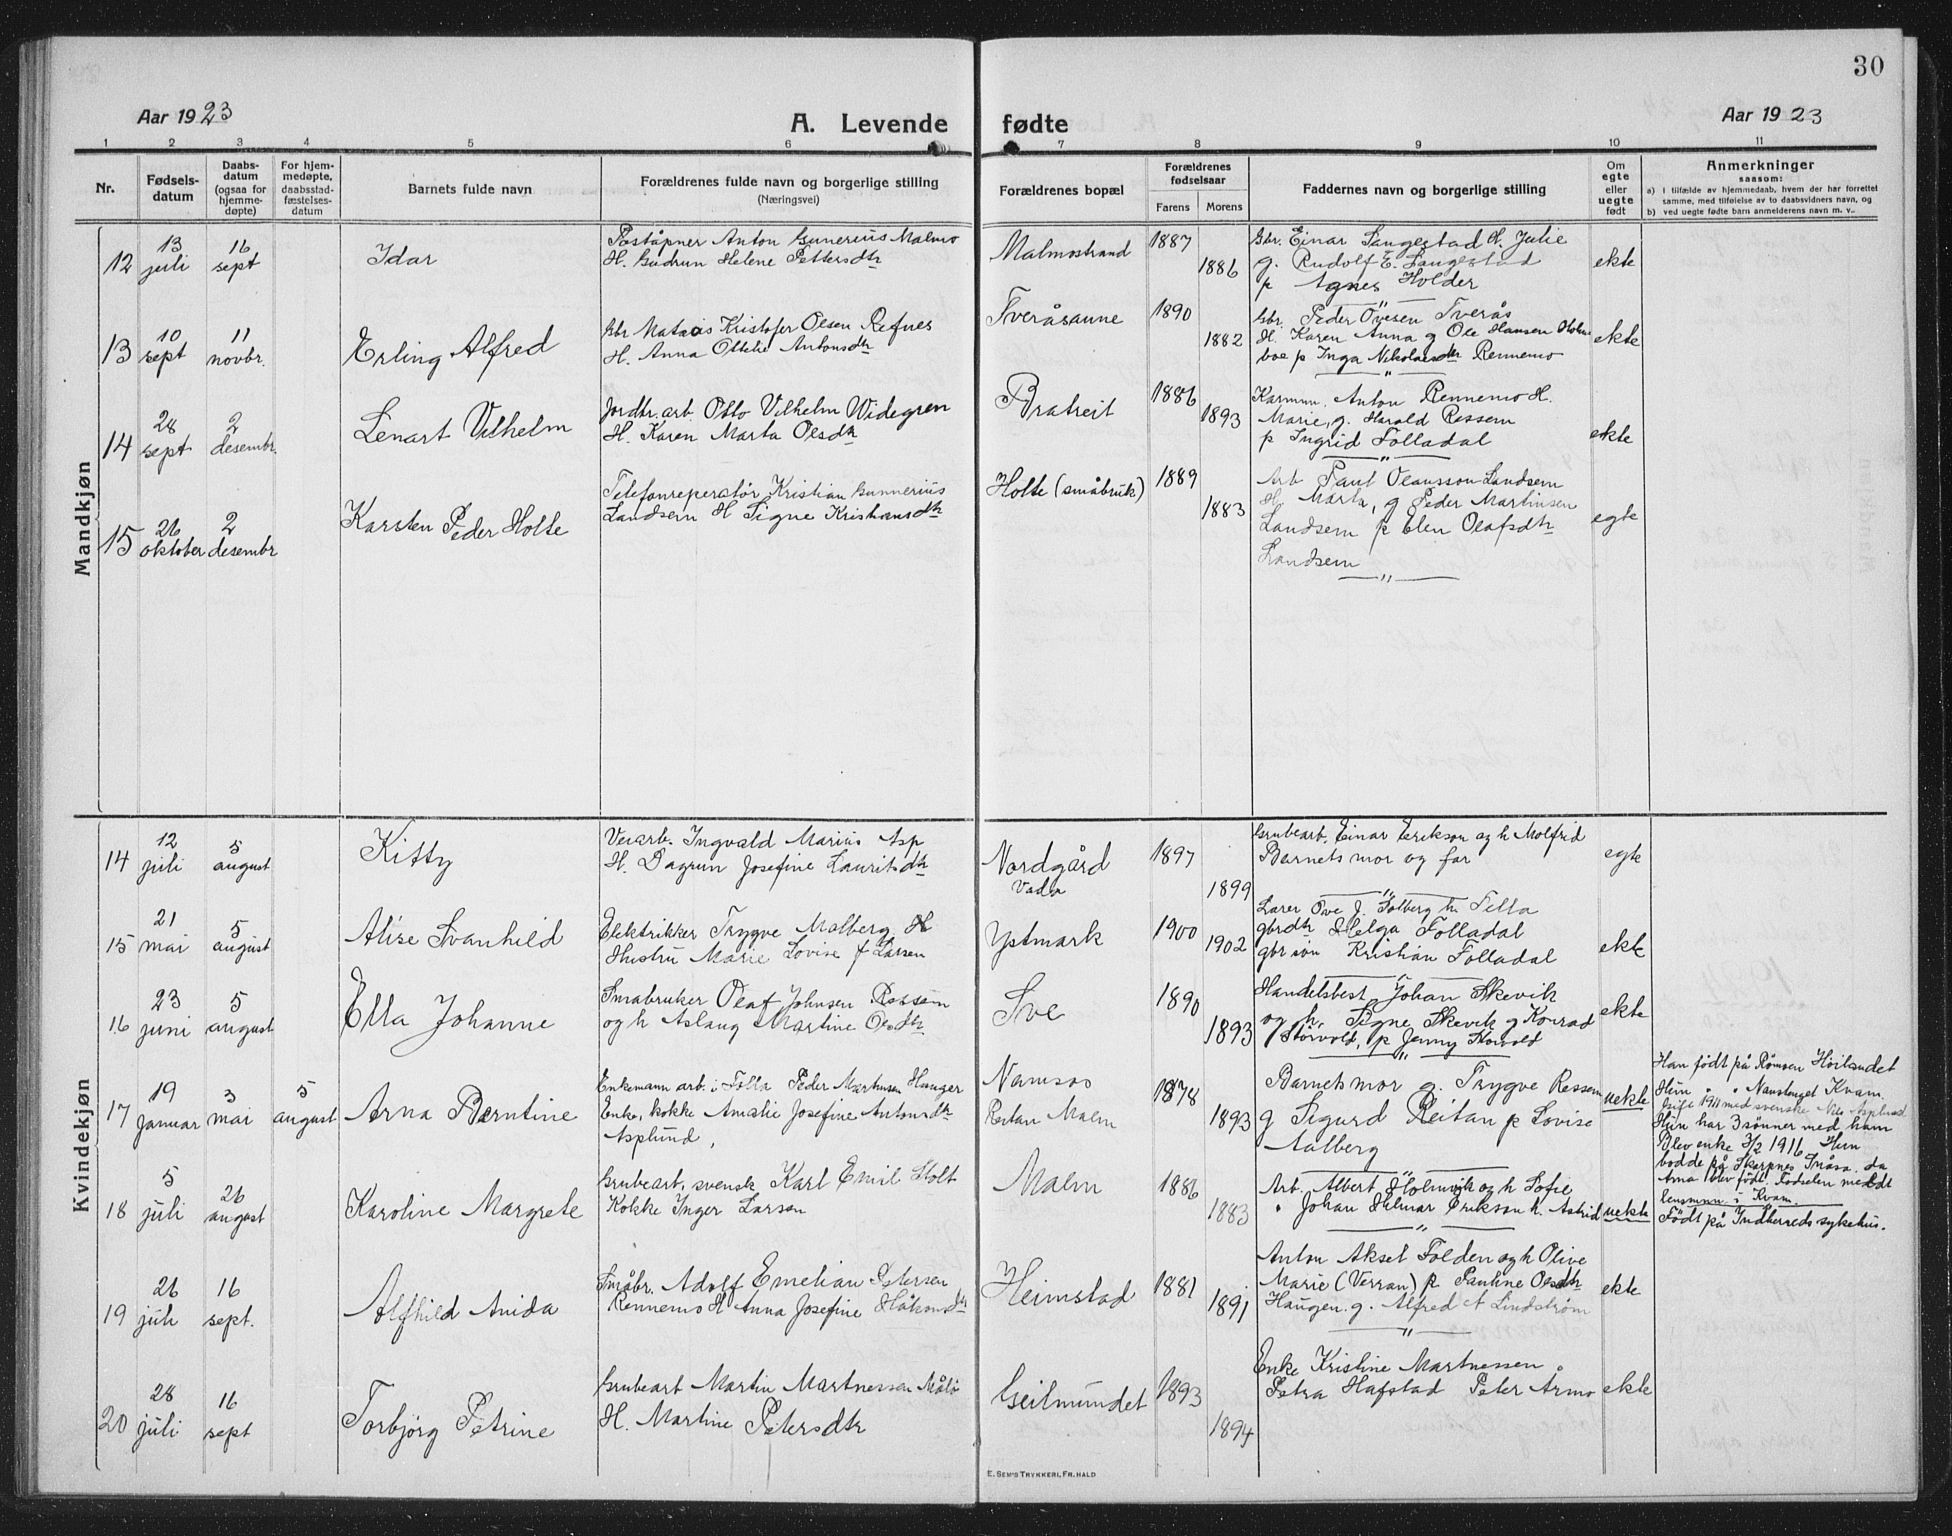 30
Aar 1923
A. Levende fødte
Aar 1923
1 2 3 4 5 6 7 8 9 10 11
Nr.
Fødsels-
datum
Daabs-
datum
(ogsaa for
hjemme-
døpte)
For hjem-
medøpte,
daabsstad-
fæstelses-
datum
Barnets fulde navn
Forældrenes fulde navn og borgerlige stilling
(Næringsvei)
Forældrenes bopæl
Forældrenes
fødselsaar
Farens Morens
Faddernes navn og borgerlige stilling
Om
egte
eller
uegte
født
Anmerkninger
saasom:
a) I tilfælde av hjemmedaab, hvem der har forrettet
samme, med tilføielse av to daabsvidners navn og
b) ved uegte fødte barn anmelderens navn m. v..
Mandkjøn
12
13
juli
16
sept
Idar
Poståpner Anton Gunerius Malmo
H. Gudrun Helene Pettersdtr
Malmostrand
1887
1886
Gbr. Einar Langestad H. Julie
g. Rudolf E. Langestad
p Agnes Holder
ekte
13
10
sept
11
novbr.
Erling Alfred
Gbr Mataas Kristofer Olsen Refnes
H. Anna Ottelie Antonsdtr
Tveråsaune
1890
1882
Gbr. Peder Ovesen Tverås
H. Karen Anna g Ole Hansen Holme
boe p Inga Nikolaisdtr Rennemo
ekte
14
28
sept
2
desembr.
Lenart Vilhelm
Jordbr. arb. Otto Vilhelm Widegren
H. Karen Marta Olsdtr
Bratreit
1886
1893
Karmun. Anton Rennemo H.
Marie, g. Harald Ressem
p Ingrid Folladal
ekte
15
26
oktober
2
desembr
Karsten Peder Holte
Telefonreperatør Kristian Gunnerius
Landsem H Signe Kristiansdtr
Holte (småbruk)
1889
1883
Arb Paul Olausson Landsem
H Marta, g Peder Martinsen
Landsem p Elen Olafsdtr
Landsem
egte
Kvindekjøn
14
12
juli
5
august
Kitty
Veiarb. Ingvald Marius Asp
H. Dagrun Josefine Lauritsdtr
Nordgård
Vada
1897
1899
Grubearb. Einar Erikson og h Molfrid
Barnets mor og far
egte
15
21
mai
5
august
Alise Svanhild
Elektrikker Trygve Malberg H
Hustru Marie Lovise f Larsen
Ystmark
1900
1902
Lærer Ove J. Solberg h. Tella
gbrdtr Helga Folladal
gbr søn Kristian Folladal
ekte
16
23
juni
5
august
Ella Johanne
Småbruker Olaf Johnsen Ressem
og h Aslaug Martine Olsdtr.
Sve
1890
1893
Handelsbest. Johan Skevik
og h. Signe Skevik g Konrad
Storvold, p Jenny Storvold
ekte
17
19
januar
3
mai
5
august
Arna Berntine
Enkemann arb. i Folla Peder Martinsen Hauger
Enke, kokke Amalie Josefine Antonsdtr
Asplund,
Namsos
Reitan Malm
1878
1893
Barnets mor g. Trygve Ressem
g Sigurd Reitan p Lovise
Aalberg
uekte
Han født på Rømoen Høilandet
Hun " " Naustenget Kvam.
Gift 1911 med svenske Nils Asplund
Hun har 3 sønner med ham
Blev enke 3/2 1916 Hun
bodde på Skarpnes Snåsa. da
Arna blev født. Fødselen meldt
lensmnn i Kvam.
18
5
juli
26
august
Karoline Margrete
Grubearb, svensk Karl Emil Stolt
Kokke Inger Larsen
Malm
1886
1883
Arb. Albert Holmvik og h Sofie
" Johan Hilmar Erikson h. Astrid
uekte
Født på Indherreds sykehus.
19
26
juli
16
sept.
Alfhild Anida
Småbr. Adolf Emelian Petersen
Rennemo H Anna Josefine Håkonsdtr
Heimstad
1881
1891
Anton Aksel Folden og h Olive
Marie (Verran) p Pauline Olsdtr
Haugen. g. Alfred A Lindstrøm
ekte
20
28
juli
16
sept
Torbjørg Petrine
Grubearb Martin Martnessen Målø
H. Martine Petersdtr
Geilmundet
1893
1894
Enke Kristine Martnessen
Petra Hafstad Peter Årmo
ekte
E. SEM'S TRYKKERI, FR. HALD